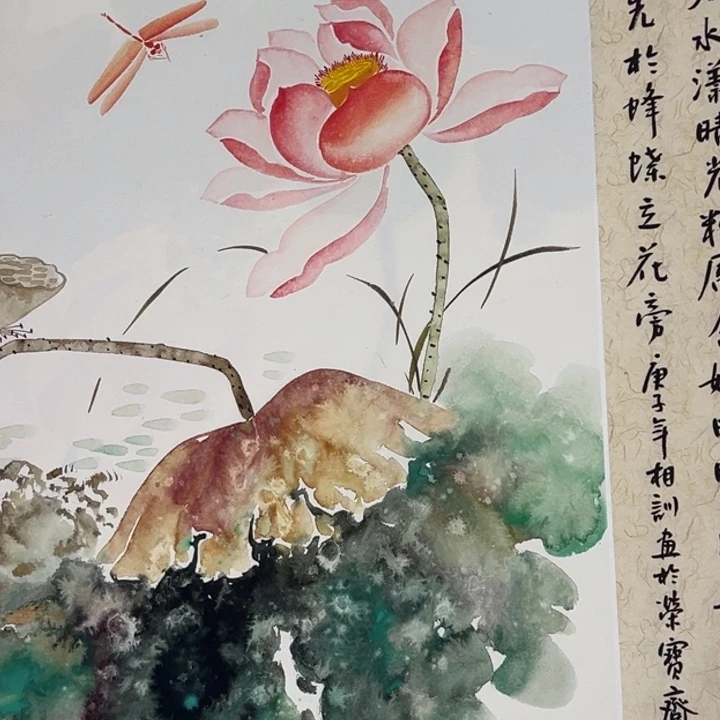 水漾晴光粉
光於蜂蝶立花旁庚子年相訓畫於榮寶齋